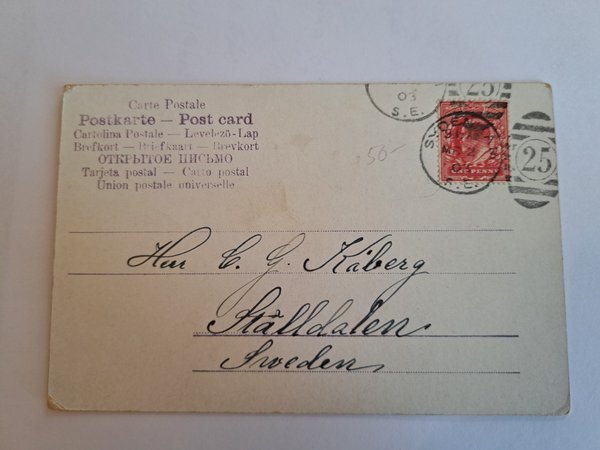 Carte Postale
Postkarte — Post card
Cartolina Postale — Levelező-Lap
Brefkort — Briefkaart — Brevkort
ОТКРЫТОЕ ПИСЬМО
Tarjeta postal — Carto postal
Union postale universelle
50-
03
S.E.
25
25
S.E.
ONE PENNY
Herr C. G. Kåberg
Ställdalen
Sweden